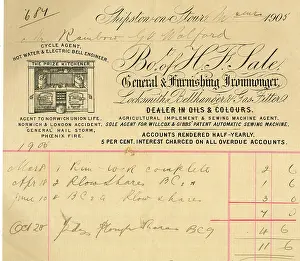 684 Shipston-on-Stour, 1905
Mr Rainbow
CYCLE AGENT,
HOT WATER & ELECTRIC BELL ENGINEER.
Bo. of H. F. Sale,
THE PRIZE KITCHENER.
General & Furnishing Ironmonger,
Locksmith, Bellhanger & Gas Fitter.
DEALER IN OILS & COLOURS.
AGENT TO NORWICH UNION LIFE,
NORWICH & LONDON ACCIDENT,
GENERAL HAIL STORM,
PHŒNIX FIRE.
AGRICULTURAL IMPLEMENT & SEWING MACHINE AGENT.
SOLE AGENT FOR WILLCOX & GIBBS' PATENT AUTOMATIC SEWING MACHINE.
ACCOUNTS RENDERED HALF-YEARLY.
5 PER CENT. INTEREST CHARGED ON ALL OVERDUE ACCOUNTS.
1 Rim lock complete 2 6
2 Plow shares 1 6
Plow shares 3
7 0
Oct 28 Plough Shares BC9 4 6
11 6